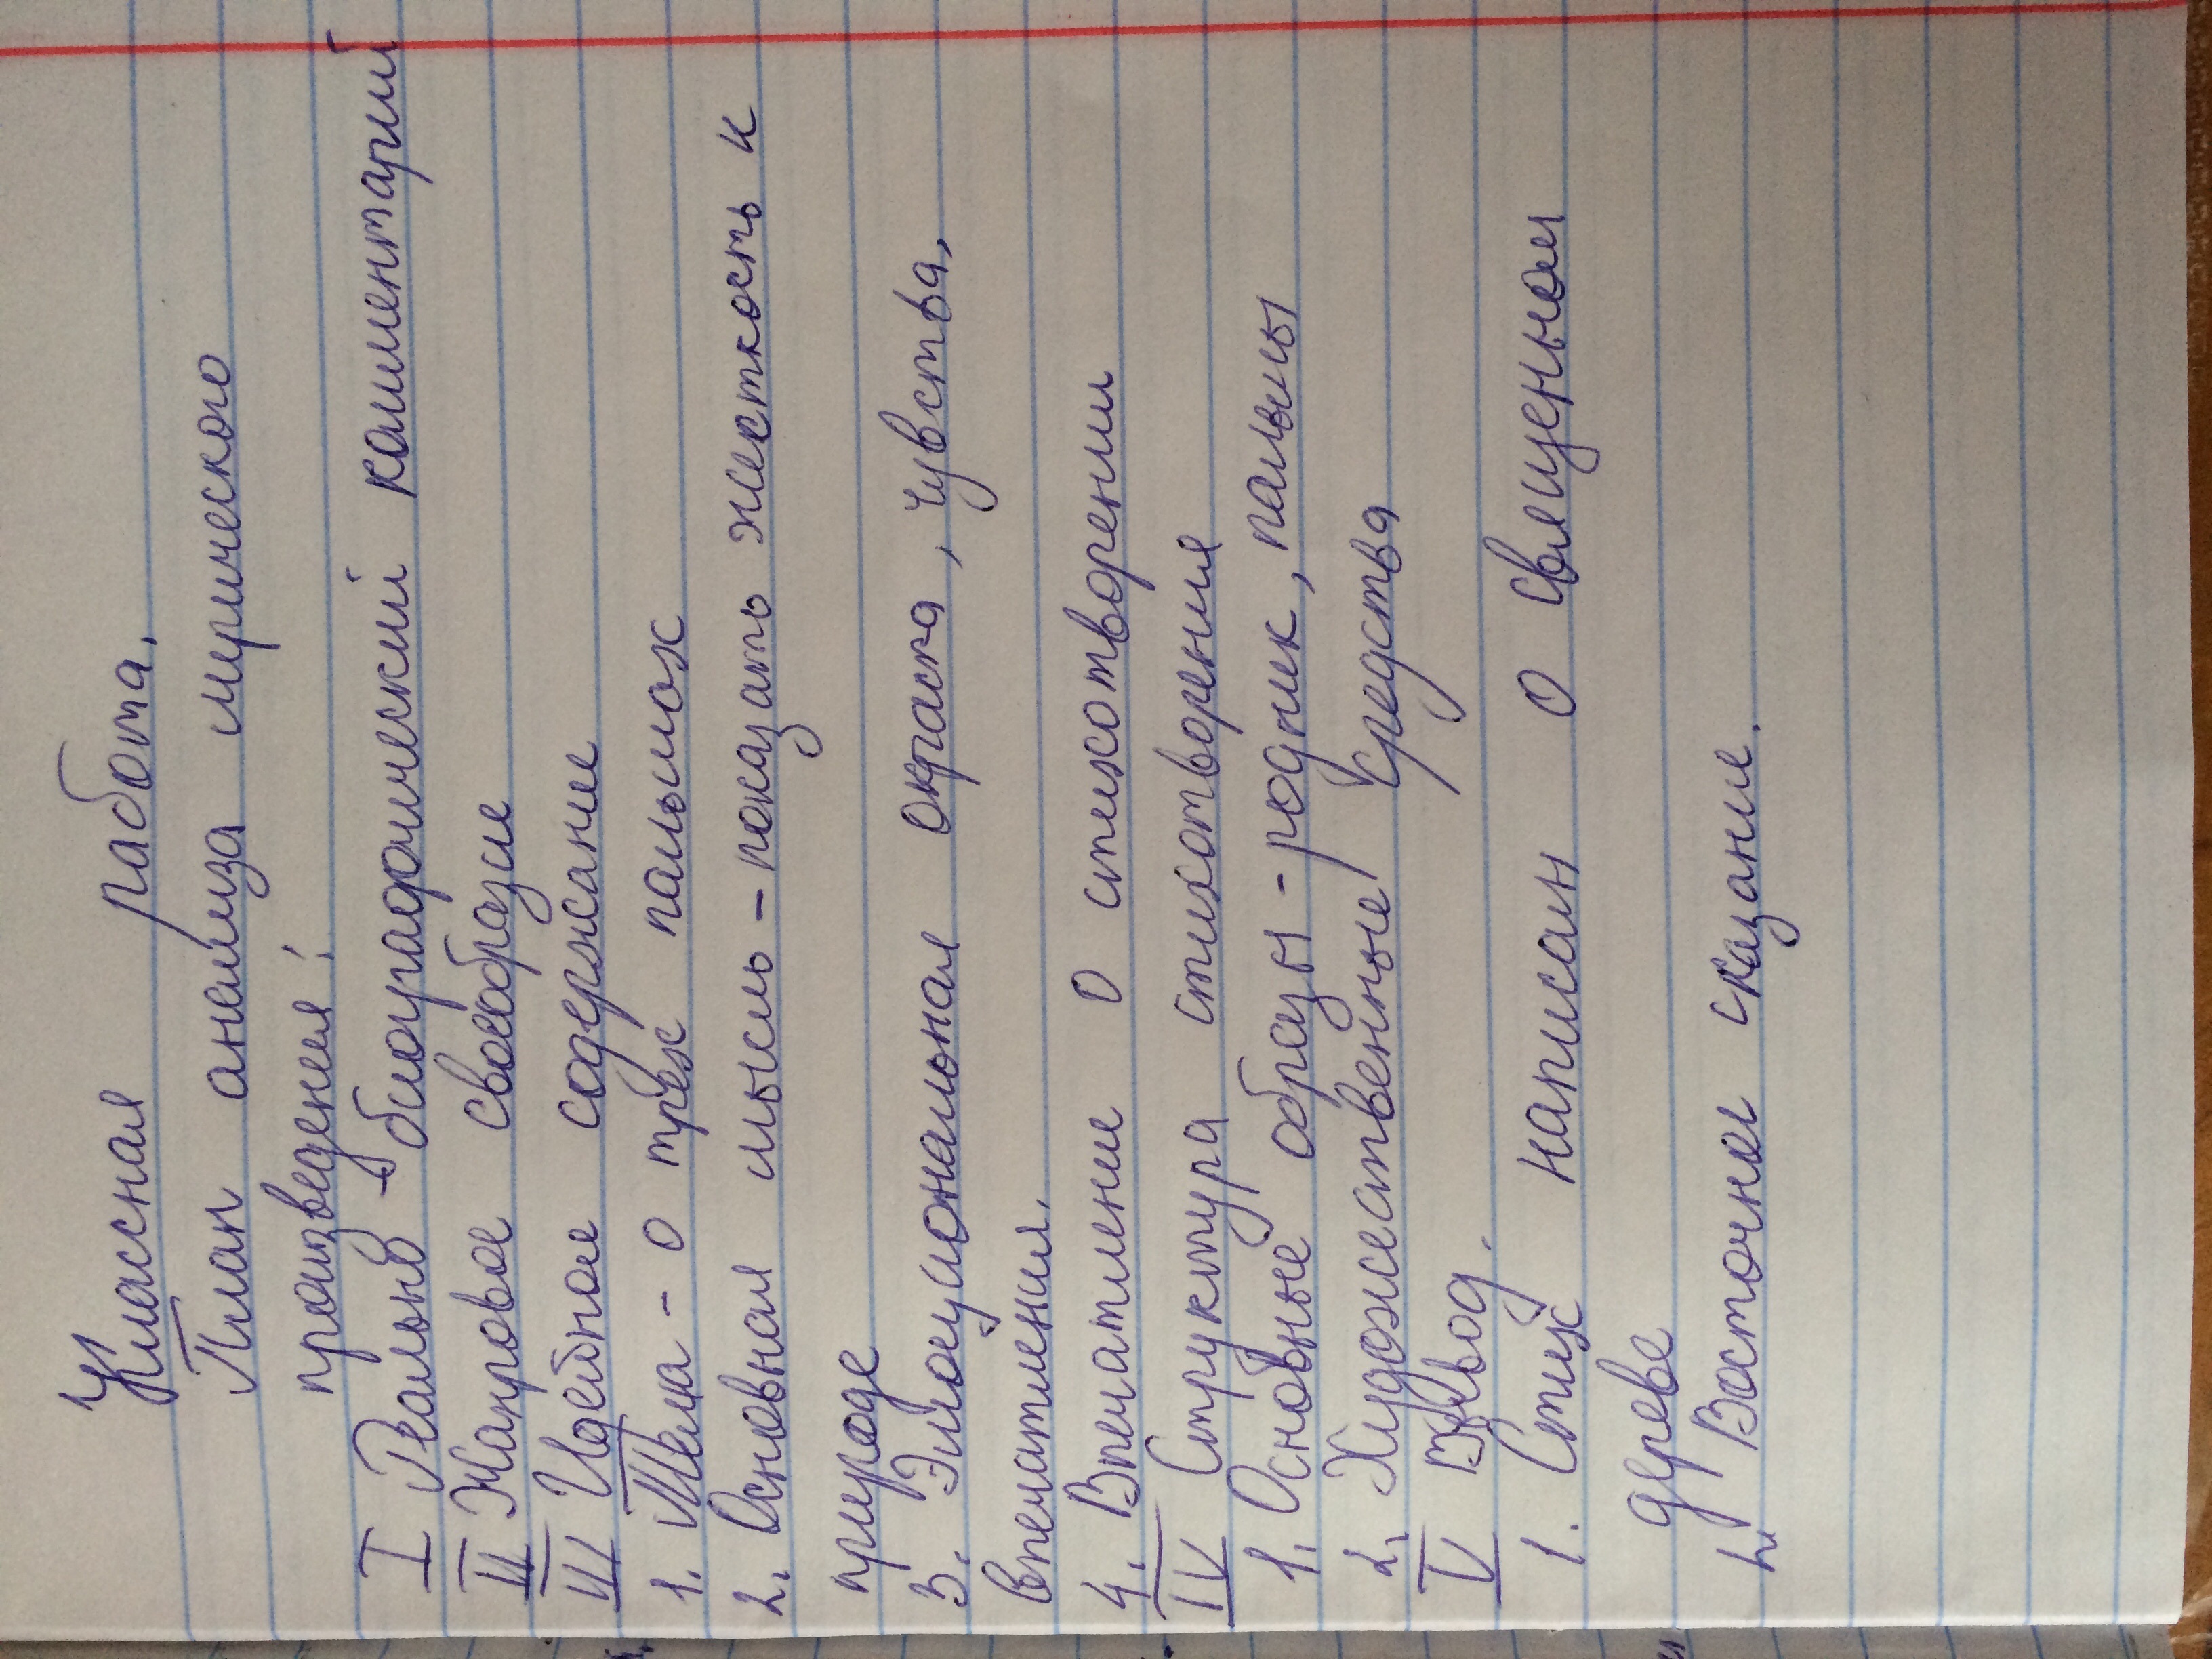 Класная работа.
План анализа лирического
произведения:
I Реально-биографический комментарий
II Жанровое своеобразие
III Идейное содержание
1. Тема - о трёх пальмах
2. Основная мысль - показать жесткость к
природе
3. Эмоциональная окраска, чувства,
впечатления.
4. Впечатление о стихотворении
IV Структура стихотворения
1. Основные образы - родник, пальмы
2. Художественные средства
V Вывод.
1. Стих написан о священном
дереве
2. Восточное сказание.